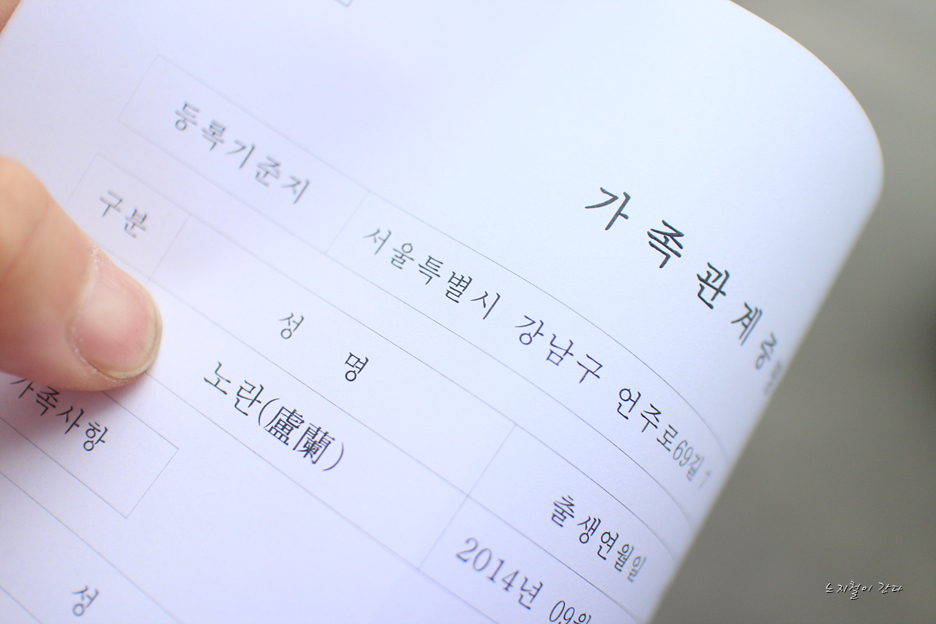 가족관계증
등록기준지 서울특별시 강남구 언주로69길
구분 성 명 출생연월일
노란(盧蘭) 2014년 09월
가족사항
성
느지철이 간다